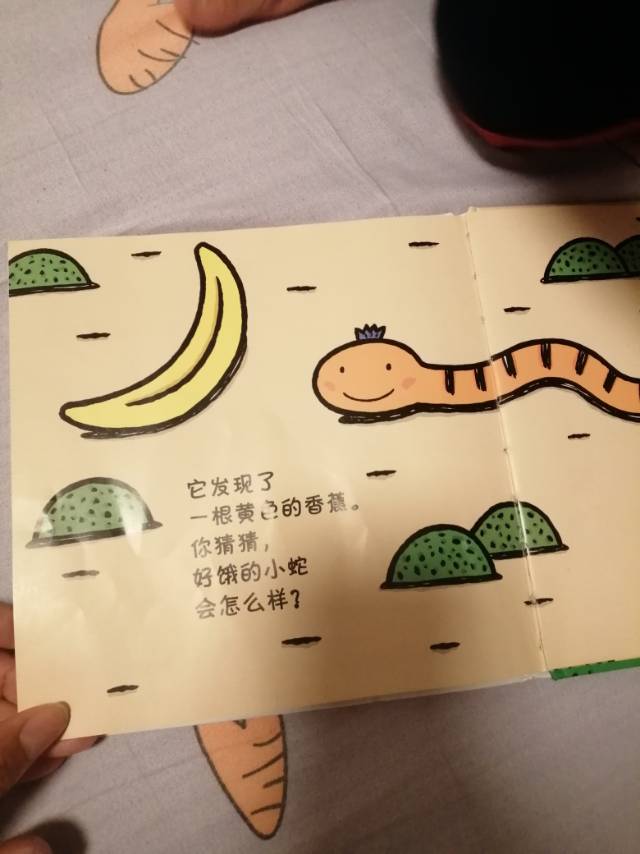 它发现了
一根黄色的香蕉。
你猜猜，
好饿的小蛇
会怎么样？